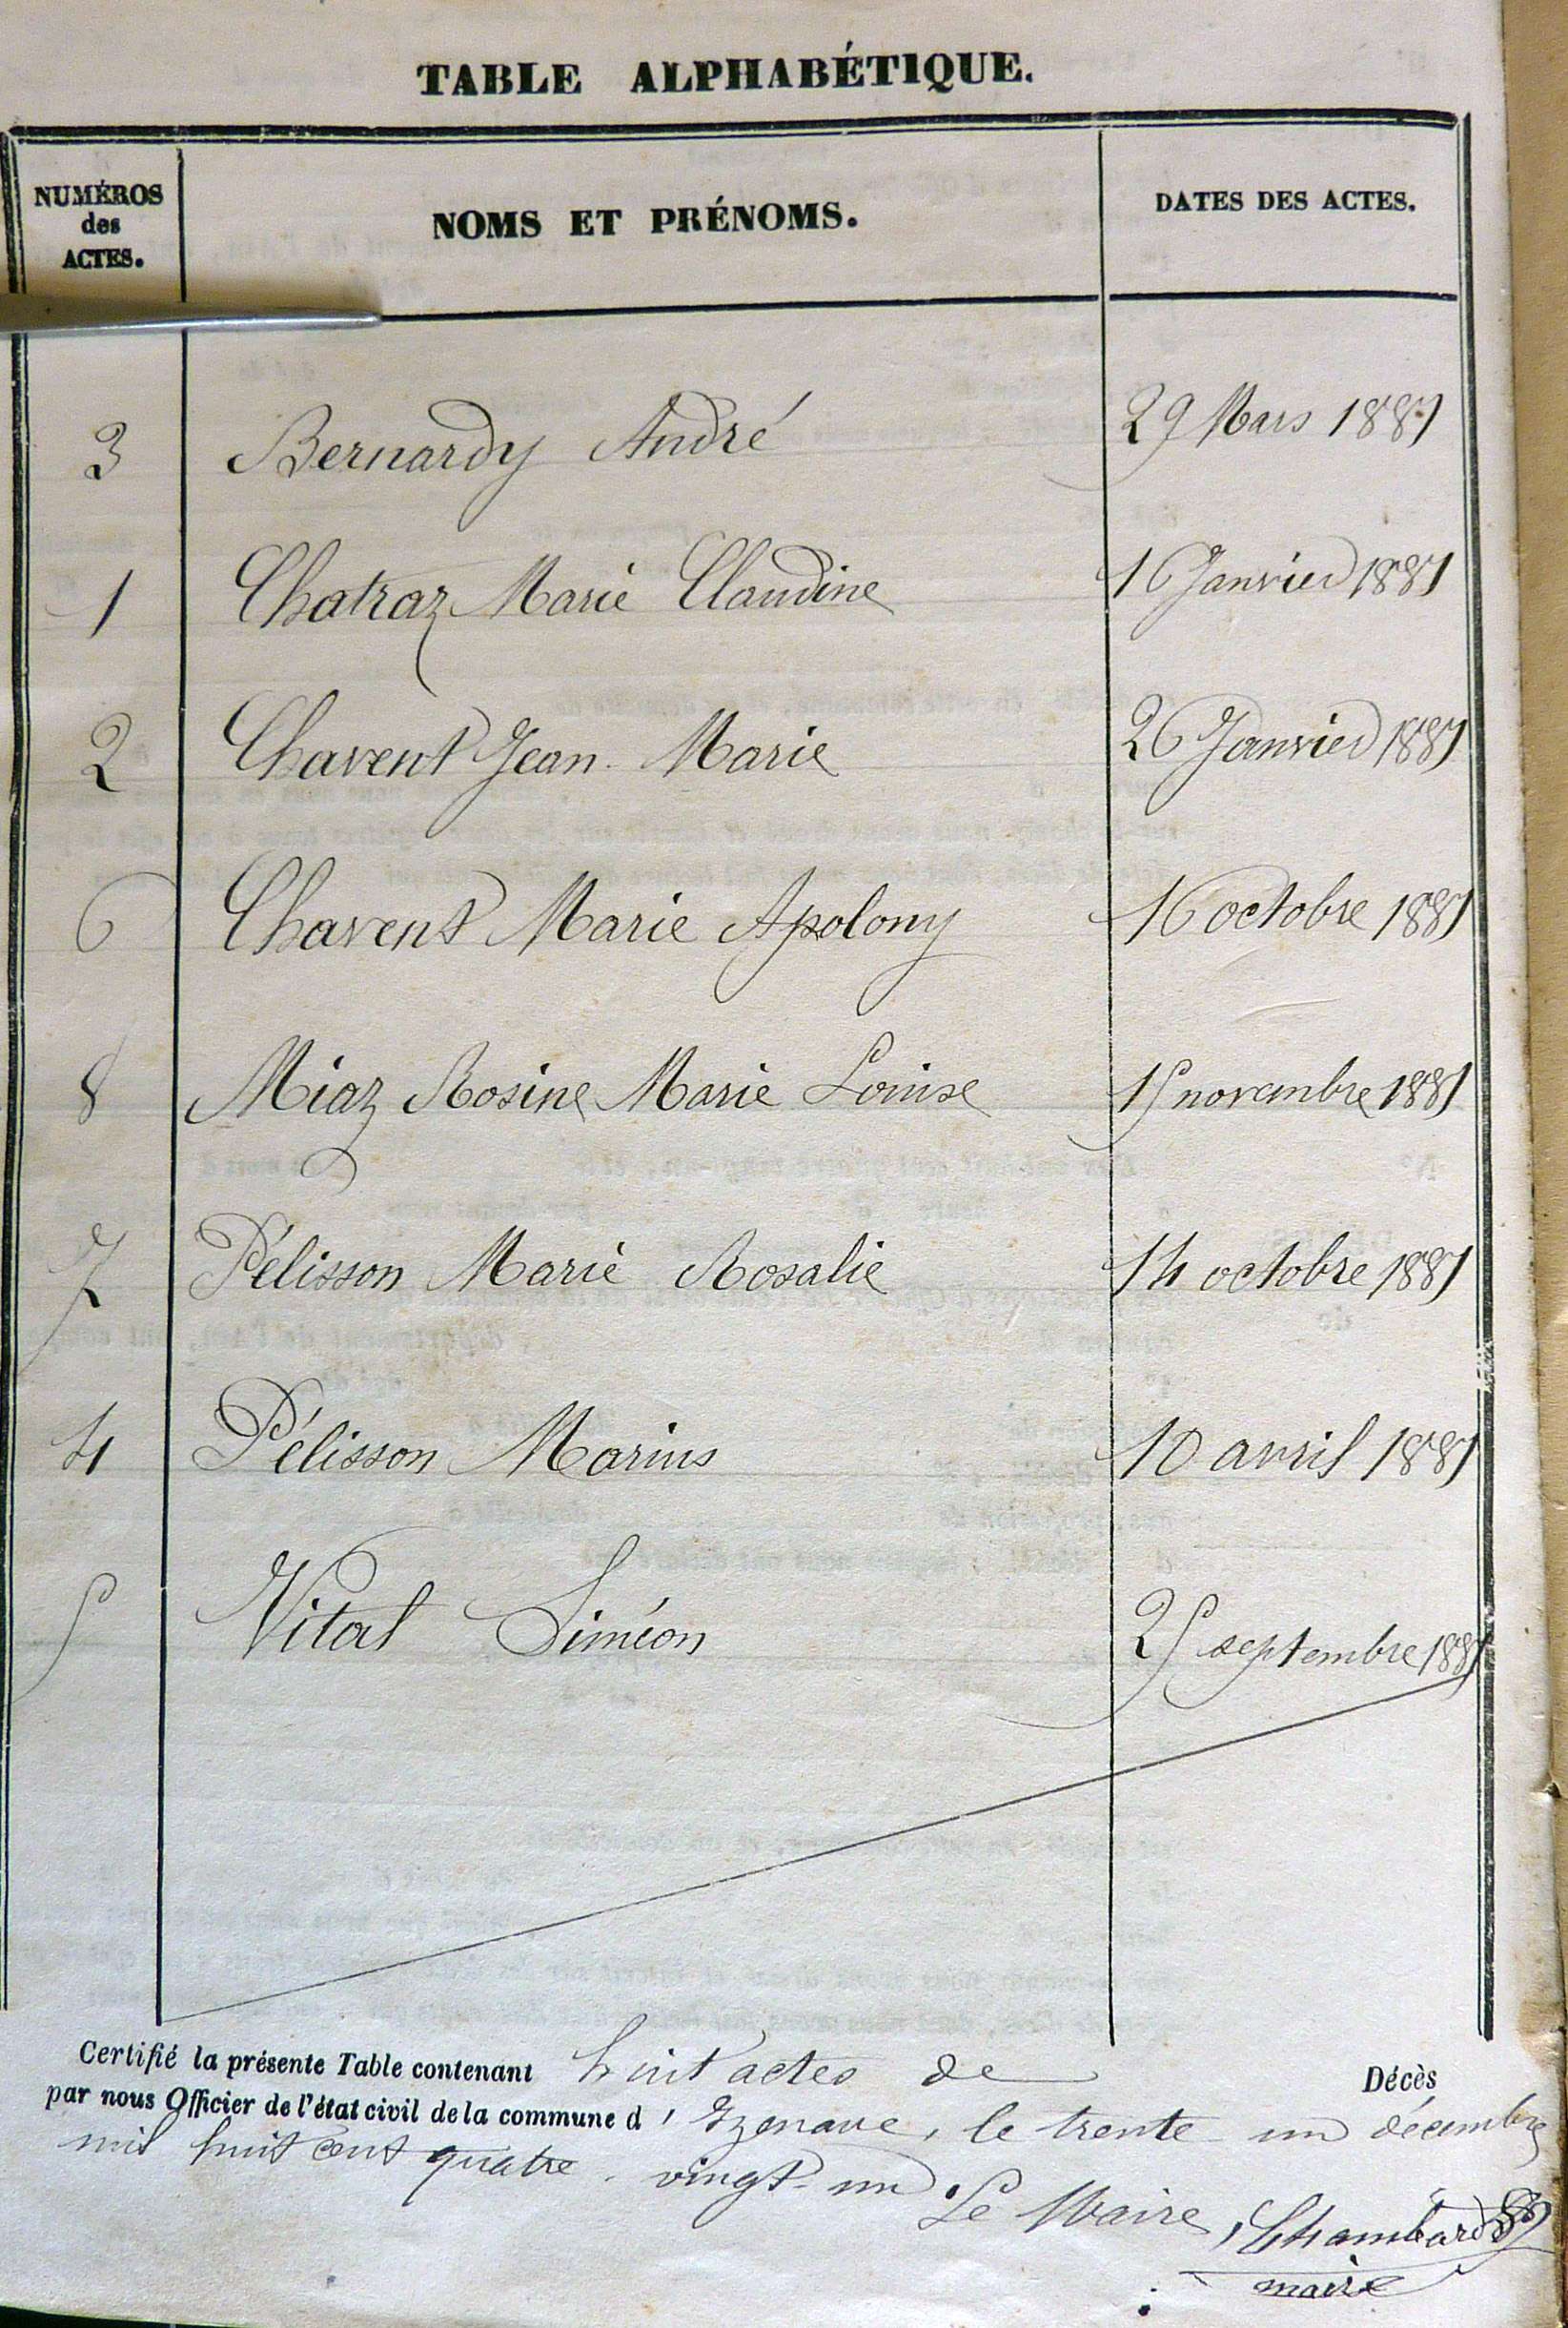 TABLE ALPHABÉTIQUE.
NUMÉROS des ACTES. NOMS ET PRÉNOMS. DATES DES ACTES.
3 Bernardy André 29 Mars 1881
1 Chatraz Marie Claudine 16 Janvier 1881
2 Chavent Jean Marie 26 Janvier 1881
6 Chavent Marie Apolony 16 octobre 1881
8 Miaz Rosine Marie Louise 15 novembre 1881
7 Pélisson Marie Rosalie 14 octobre 1881
4 Pélisson Marius 10 avril 1881
5 Vital Siméon 25 septembre 1881
Certifié la présente Table contenant huit actes de Décès
par nous Officier de l'état civil de la commune d'Izenave, le trente un décembre
mil huit cent quatre-vingt-un Le Maire, Chambard
maire